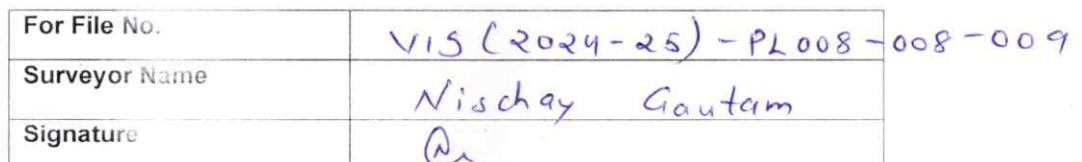 For File No. VIS (2024-25) - PL008-008-009
Surveyor Name Nischay Gautam
Signature